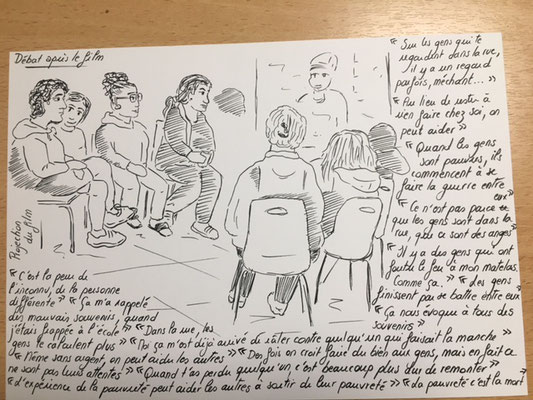 Débat après le film
« Sur les gens qui te
regardent dans la rue,
il y a un regard
parfois, méchant... »
« Au lieu de rester à
rien faire chez soi, on
peut aider »
« Quand les gens
sont pauvres, ils
commencent à se
faire la guerre entre
eux »
« Ce n'est pas parce
que les gens sont dans la
rue, que ce sont des anges »
« Il y a des gens qui ont
foutu le feu à mon matelas.
Comme ça. » « Les gens
finissent par se battre entre eux »
« Ça nous évoque à tous des
souvenirs »
Projection du film
« C'est la peur de
l'inconnu, de la personne
différente » « Ça m'a rappelé
des mauvais souvenirs, quand
j'étais frappée à l'école » « Dans la rue, les
gens te calculent plus » « Moi ça m'est déjà arrivé de râler contre quelqu'un qui faisait la manche »
« Même sans argent, on peut aider les autres » « Des fois on croit faire du bien aux gens, mais en fait ce
ne sont pas leurs attentes » « Quand t'as perdu quelqu'un, c'est beaucoup plus dur de remonter »
« L'expérience de la pauvreté peut aider les autres à sortir de leur pauvreté » « La pauvreté c'est la mort »